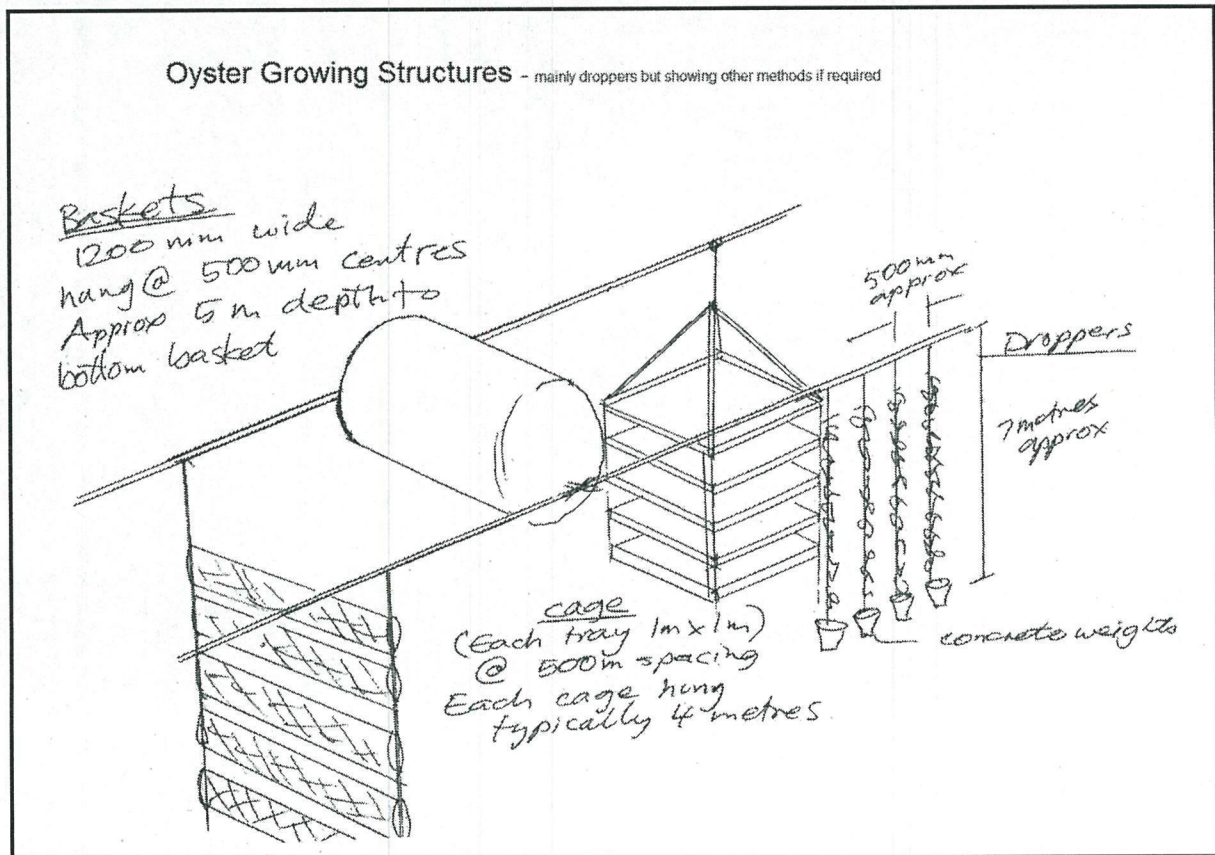 Oyster Growing Structures - mainly droppers but showing other methods if required
Baskets
1200 mm wide
hang @ 500mm centres
Approx 5 m depth to
bottom basket
500mm
approx
Droppers
7 metres
approx
concrete weights
cage
(Each tray 1m x 1m)
@ 500m spacing
Each cage hung
typically 4 metres